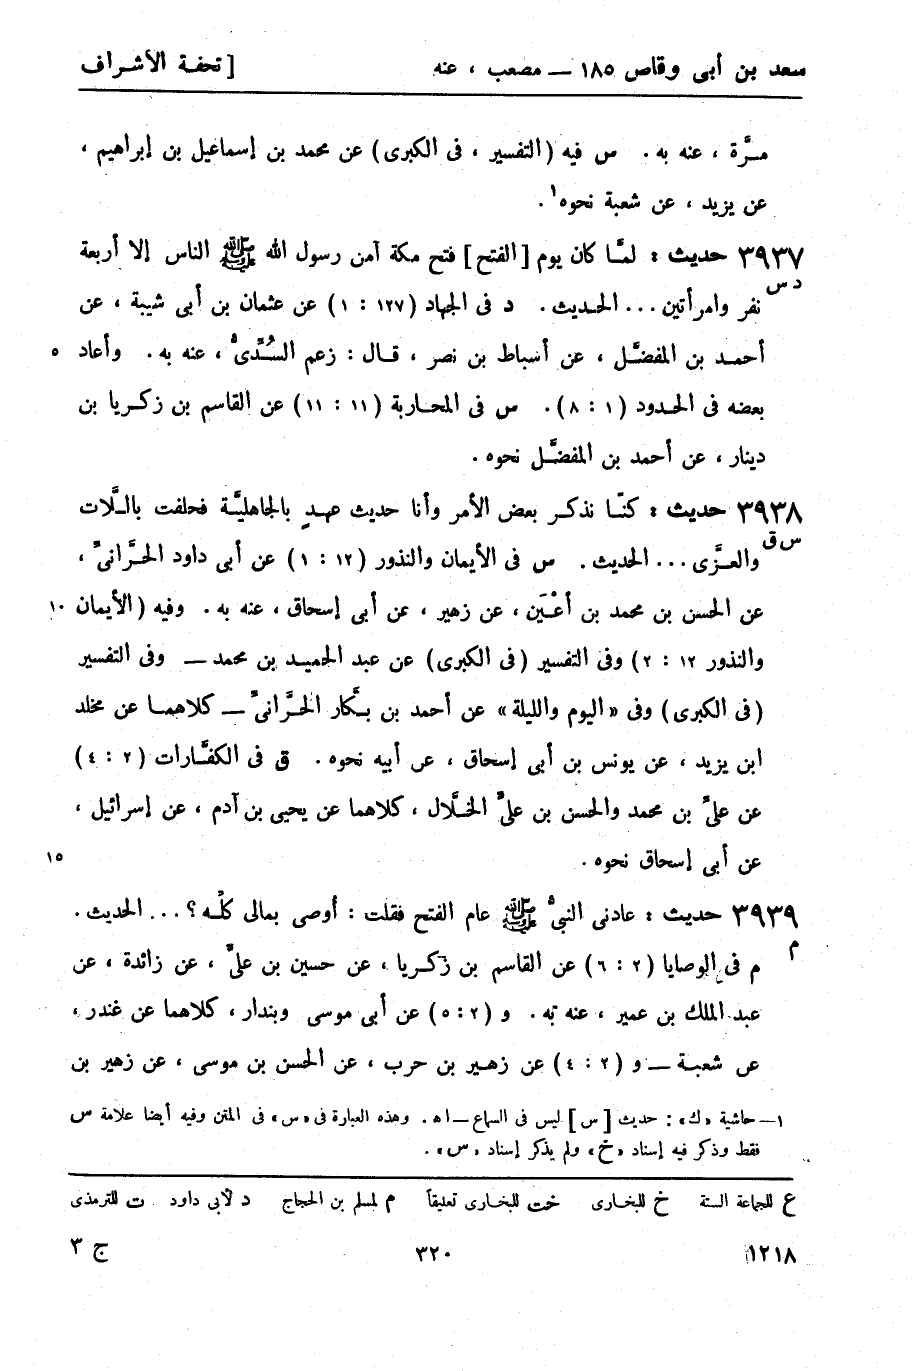 سعد بن أبى وقاص ١٨٥ — مصعب ، عنه [ تحفة الأشراف
مرَّة ، عنه به . س فيه (التفسير ، فى الكبرى) عن محمد بن إسماعيل بن إبراهيم ،
عن يزيد ، عن شعبة نحوه١ .
٣٩٣٧ حديث : لمَّا كان يوم [الفتح] فتح مكة آمن رسول الله ﷺ الناس إلا أربعة
د س
نفر وامرأتين ... الحديث . د فى الجهاد (١٢٧ : ١) عن عثمان بن أبى شيبة ، عن
أحمد بن المفضَّل ، عن أسباط بن نصر ، قال : زعم السُّدّىُّ ، عنه به . وأعاد ٥
بعضه فى الحدود (١ : ٨) . س فى المحاربة (١١ : ١١) عن القاسم بن زكريا بن
دينار ، عن أحمد بن المفضَّل نحوه .
٣٩٣٨ حديث : كنّا نذكر بعض الأمر وأنا حديث عهدٍ بالجاهليَّة فحلفت باللَّات
س ق
والعزَّى ... الحديث . س فى الأيمان والنذور (١٢ : ١) عن أبى داود الحرَّانىِّ ،
عن الحسن بن محمد بن أعْيَن ، عن زهير ، عن أبى إسحاق ، عنه به . وفيه (الأيمان ١٠
والنذور ١٢ : ٢) وفى التفسير (فى الكبرى) عن عبد الحميد بن محمد — وفى التفسير
(فى الكبرى) وفى «اليوم والليلة» عن أحمد بن بكَّار الحرَّانىِّ — كلاهما عن مخلد
ابن يزيد ، عن يونس بن أبى إسحاق ، عن أبيه نحوه . ق فى الكفَّارات (٢ : ٤)
عن علىِّ بن محمد والحسن بن علىٍّ الخلَّال ، كلاهما عن يحيى بن آدم ، عن إسرائيل ،
عن أبى إسحاق نحوه . ١٥
٣٩٣٩ حديث : عادنى النبىُّ ﷺ عام الفتح فقلت : أوصى بمالى كلِّه ؟ ... الحديث .
م
م فى الوصايا (٢ : ٦) عن القاسم بن زكريا ، عن حسين بن علىٍّ ، عن زائدة ، عن
عبد الملك بن عمير ، عنه به . و (٢ : ٥) عن أبى موسى وبندار ، كلاهما عن غندر ،
عن شعبة — و (٢ : ٤) عن زهير بن حرب ، عن الحسن بن موسى ، عن زهير بن
١— حاشية «ك» : حديث [س] ليس فى السماع —اه . وهذه العبارة فى «س» فى المتن وفيه أيضا علامة س
فقط وذكر فيه إسناد «خ» ولم يذكر إسناد «س» .
ع للجماعة الستة خ للبخارى خت للبخارى تعليقاً م لمسلم بن الحجاج د لأبى داود ت للترمذى
١٢١٨ ٣٢٠ ج ٣